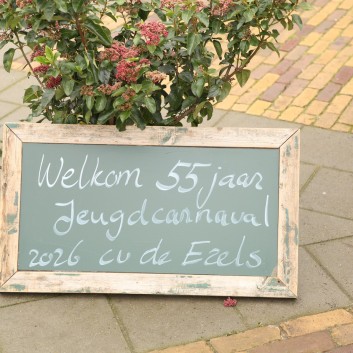 Welkom 55 jaar
Jeugdcarnaval
2026 cv de Ezels